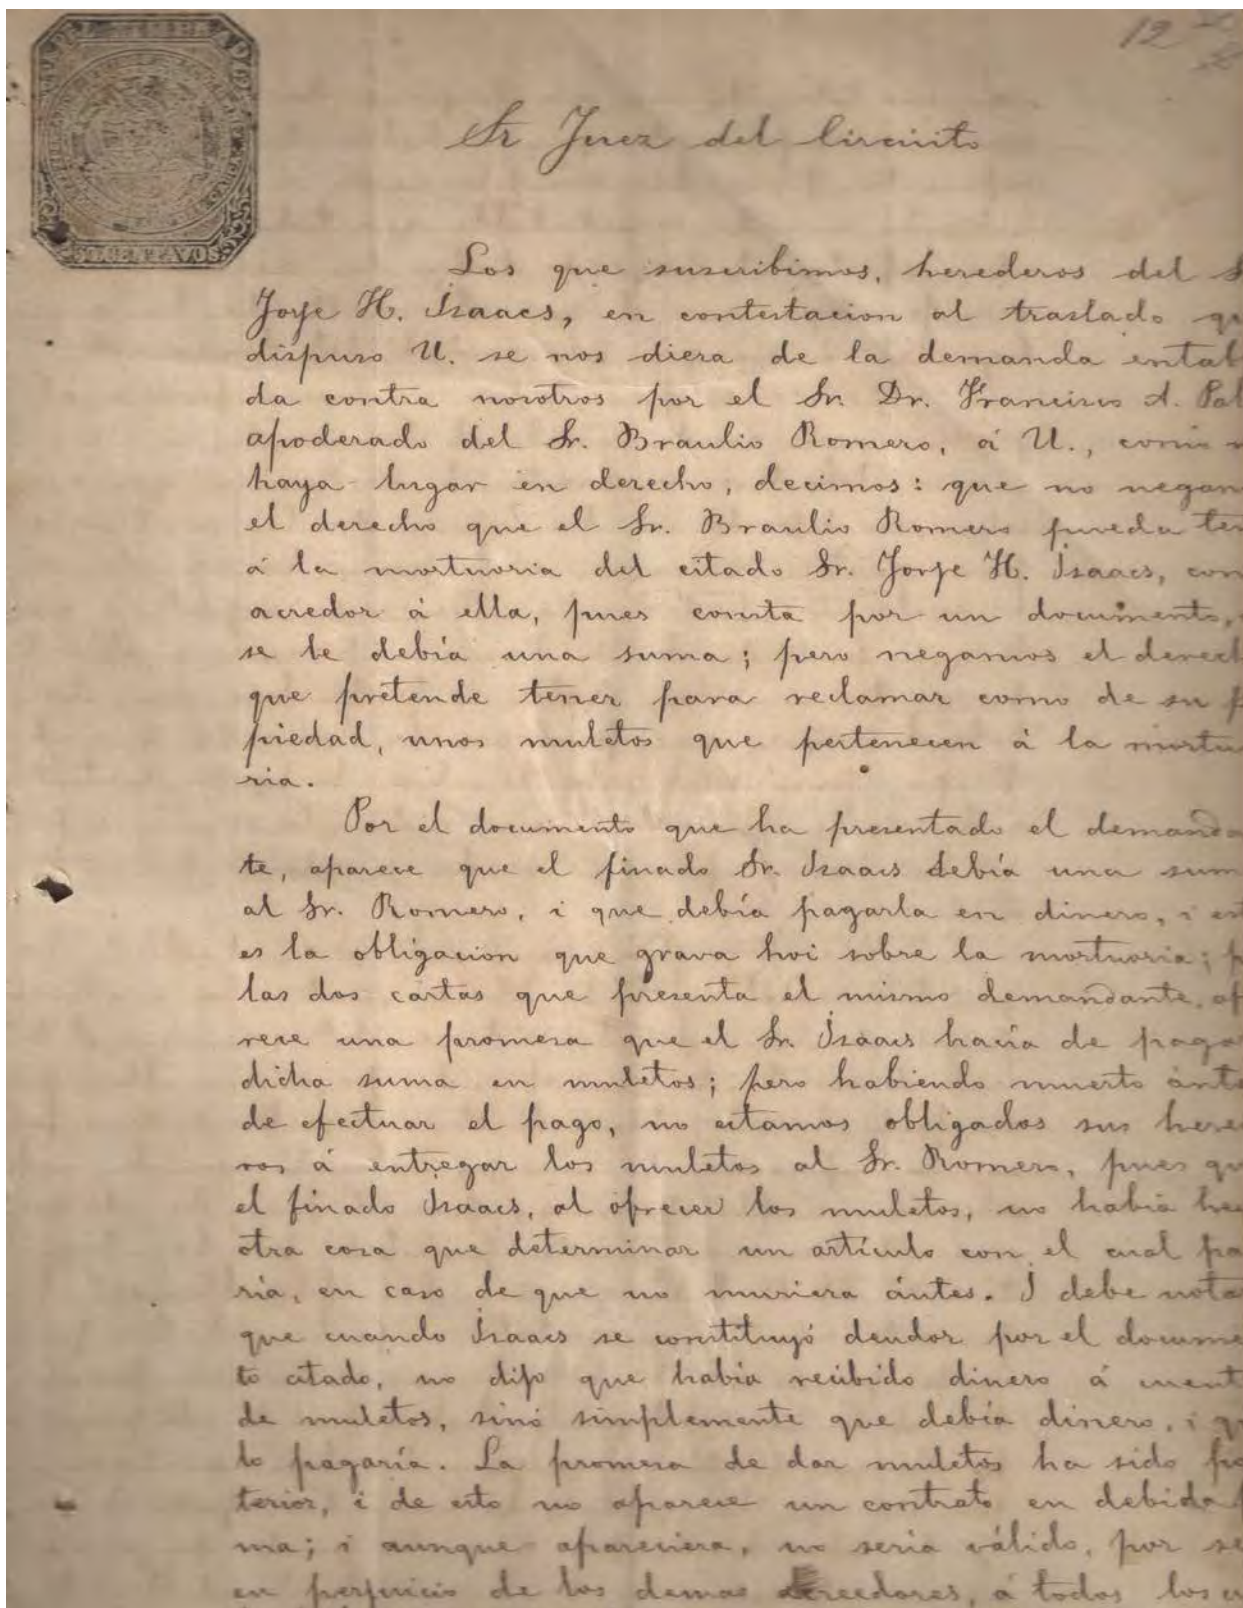 12
Sr Juez del Circuito
Los que suscribimos, herederos del S
Jorje H. Isaacs, en contestacion al traslado qu
dispuso U. se nos diera de la demanda entab
da contra nosotros por el Sr. Dr. Francisco A. Pal
apoderado del Sr. Braulio Romero, á U., como m
haya lugar en derecho, decimos: que no negam
el derecho que el Sr. Braulio Romero pueda ten
á la mortuoria del citado Sr. Jorje H. Isaacs, com
acredor á ella, pues consta por un documento,
se le debía una suma; pero negamos el derech
que pretende tener para reclamar como de su p
piedad, unos muletos que pertenecen á la mortu
ria.
Por el documento que ha presentado el demanda
te, aparece que el finado Sr. Isaacs debía una sum
al Sr. Romero, i que debía pagarla en dinero, i est
es la obligacion que grava hoi sobre la mortuoria; p
las dos cartas que presenta el mismo demandante, ap
rece una promesa que el Sr. Isaacs hacía de paga
dicha suma en muletos; pero habiendo muerto ánte
de efectuar el pago, no estamos obligados sus here
ros á entregar los muletos al Sr. Romero, pues qu
el finado Isaacs, al ofrecer los muletos, no había hec
otra cosa que determinar un artículo con el cual pa
ría, en caso de que no muriera ántes. I debe nota
que cuando Isaacs se constituyó deudor por el docume
to citado, no dijo que había recibido dinero á cuent
de muletos, sinó simplemente que debía dinero, i qu
lo pagaría. La promesa de dar muletos ha sido po
terior, i de esto no aparece un contrato en debida f
ma; i aunque apareciera, no seria válido, por se
en perjuicio de los demas acreedores, á todos los cu